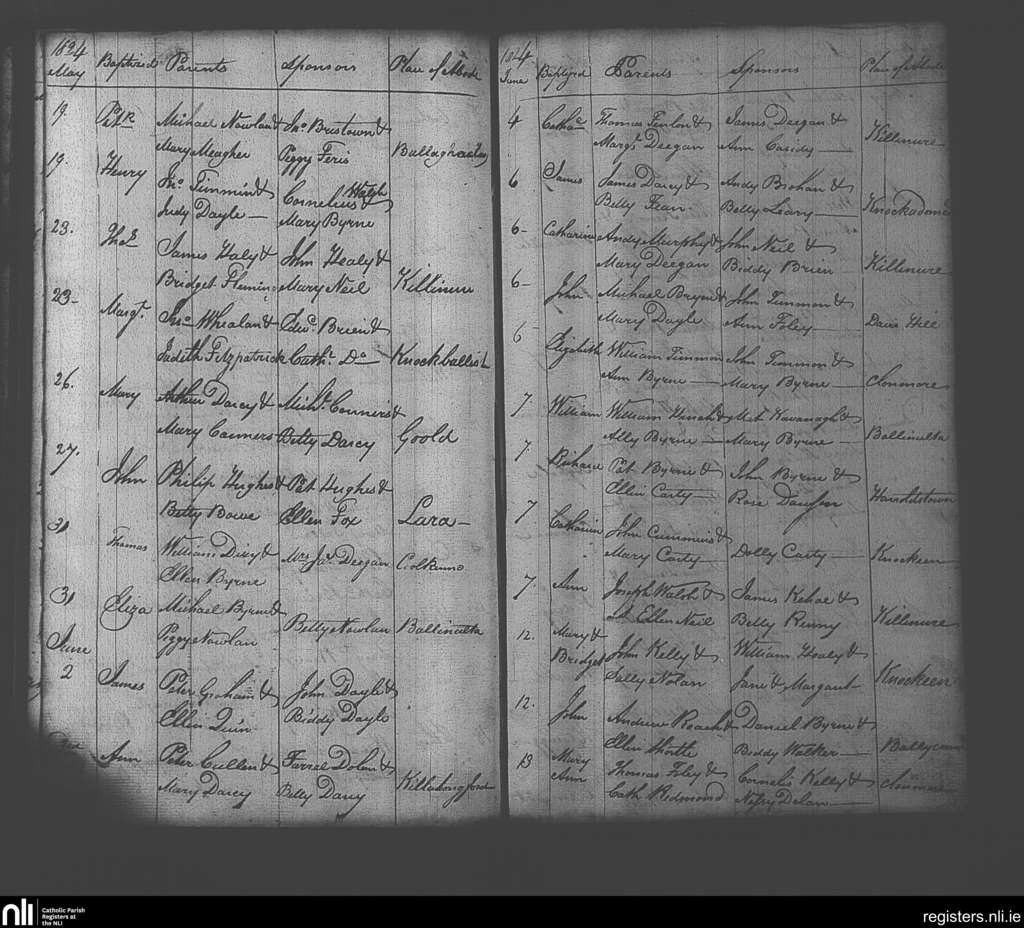 1824 May Baptized Parents Sponsors Place of Abode
19. Patk Michael Nowlan & Jno Bristown &
Mary Meagher Peggy Feris
19. Henry Jno Timmin & Cornelius Walsh &
Judy Dayle — Mary Byrne
23. Thos James Haly & John Healy &
Bridget Fleming Mary Neil Killinure
23 — Margt. Jno Whealan & Edwd. Brien &
Judith Fitzpatrick Cathe. Do — Knockballist
26. Mary Arthur Darcy & Michl. Conners &
Mary Conners Betty Darcy Goold
27. John Philip Hughes & Pat Hughes &
Betty Bowe Ellen Fox Lara —
31 Thomas William Dixy & Mrs Jas. Deegan
Ellen Byrne
31 Eliza Michael Byrne &
Peggy Nowlan Betty Nowlan Ballinulta
June
2 James Peter Graham & John Dayle &
Ellin Quin Biddy Dayle
Ann Peter Cullen & Farrel Dolan &
Mary Darcy Betty Darcy Killabongford
1824 June Baptized Parents Sponsors Place of Abode
4 Cathae Thomas Fenlon & James Deegan &
Margt. Deegan Ann Casidy — Killenure
6 James James Darcy & Andy Brohan &
Betty Fean Betty Leary —
6 — Catharine Andy Murphy & John Neil &
Mary Deegan Biddy Brien — Killenure
6 — John Michael Bryan & John Timmon &
Mary Dayle Ann Foley — Davis Hill
6 Elizabeth William Timmon John Timmon &
Ann Byrne — Mary Byrne — Clonmore
7 William William Hanah & Mat Kavanagh &
Ally Byrne — Mary Byrne — Ballinulta
7. Richard Pat Byrne & John Byrne &
Ellin Carty — Rose Dawson Haroldstown
7 Catharin John Cummins &
Mary Carty — Dolly Carty — Knockeen
7. Ann Joseph Walsh & James Kehoe &
Ellen Neil Betty Renny Killenure
12. Mary & Bridget John Kelly & William Healy &
Sally Nolan Jane & Margaret Knockeen
12. John Andrew Roach & Daniel Byrne &
Ellin Shortle Biddy Walker —
13 Mary Ann Thomas Foley & Cornelis Kelly & Clonmore
Cath Redmond Dolan —
nli Catholic Parish
Registers at
the NLI
registers.nli.ie